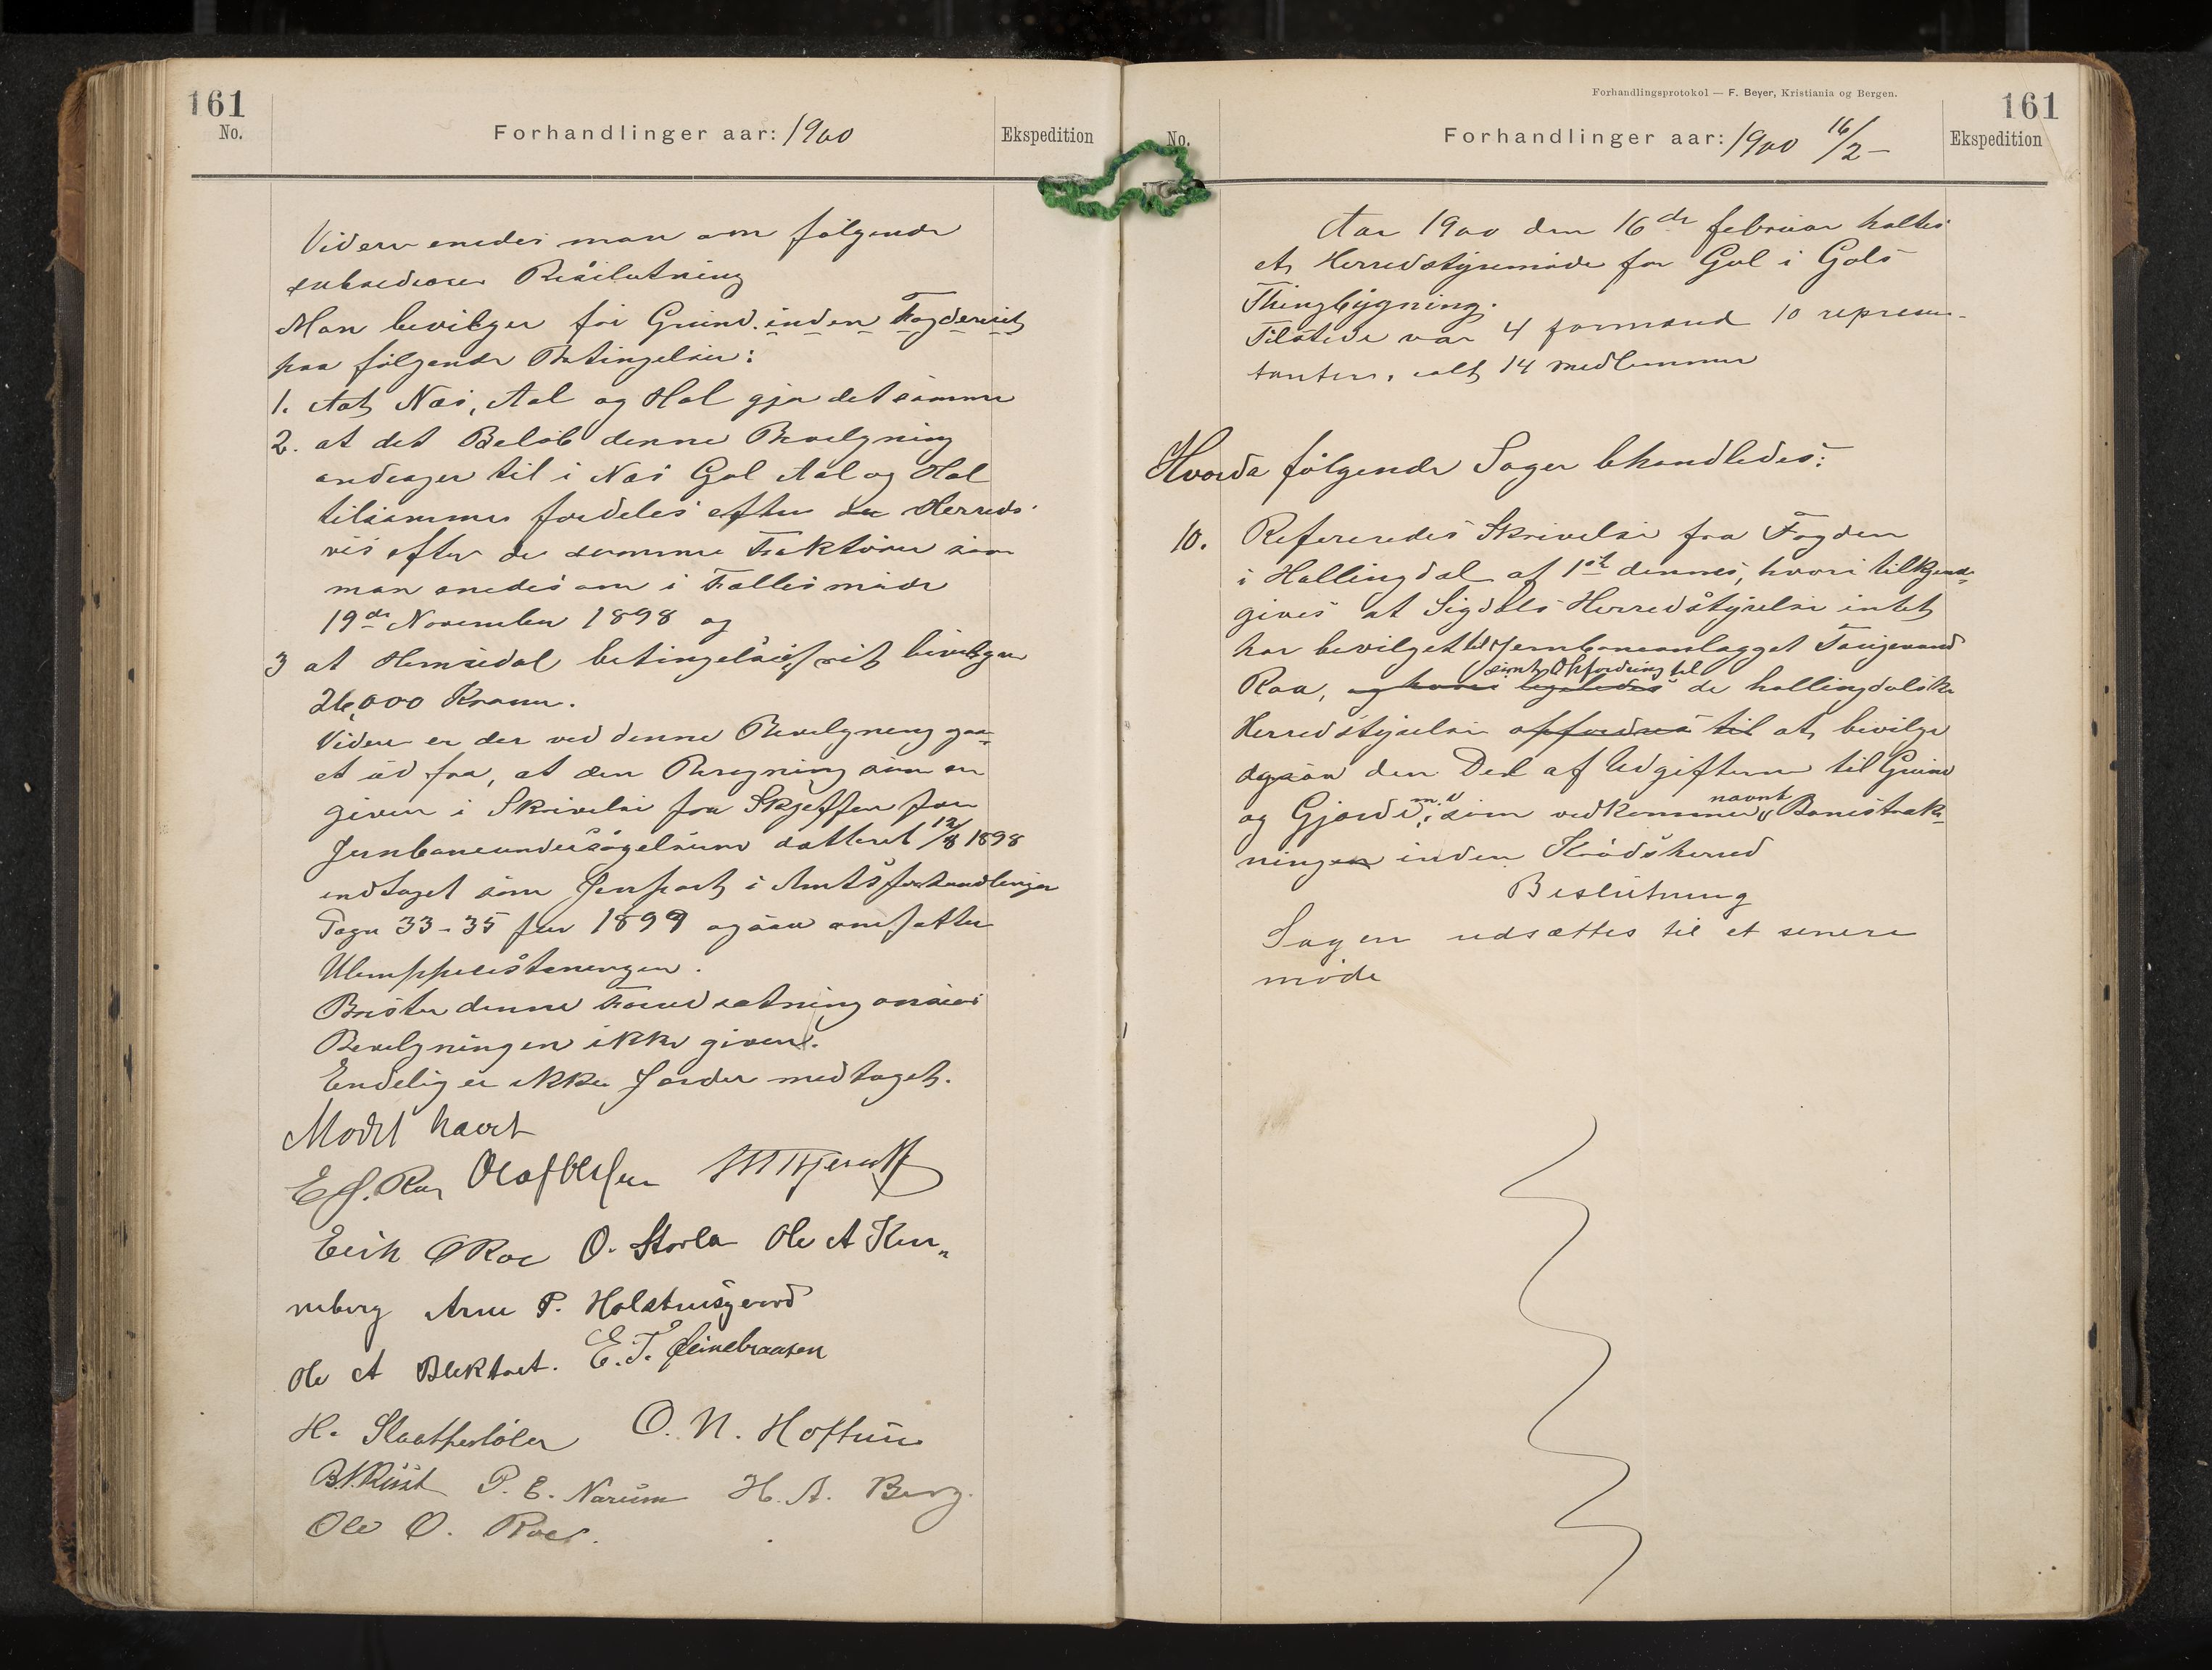 161
No.
Forhandlinger aar: 1900
Ekspedition
Videre enedes man om følgende
subsediære Beslutning
Man beviliger for Grund inden Fogderiet
paa følgende Betingelser:
1. At Næs, Aal og Hol gjør det samme
2. at det Beløb denne Bevilgning
andrager til i Næs Gol Aal og Hol
tilsammen fordeles efter Herreds-
vis efter de samme Faktorer som
man enedes om i Fællesmøde
19de November 1898 og
3 at Hemsedal betingelsesfrit bevilger
26,000 Kroner.
Videre er der ved denne Bevilgning gaa-
et ud fra, at den Beregning som er
given i Skrivelse fra Skjeffen for
Jernbaneundersøgelserne datteret 12/8 1898
indtaget som i Amtsforhandlinger
Pagn 33-35 for 1899 ogsaa omfatter
Ulemppeerstaningen.
Brister denne Forudsætning ansees
Bevilgningen ikke given.
Endelig er ikke Gjerder medtaget.
Mødet hævet
E J. Roe Olaf Olsen
Erik O Roe O. Storla Ole A Ken-
neberg Arne P. Halstensgaard
Ole A Blektvet. E. T. Heinebraaten
H. Slaathestølen O. N. Hoftun
B.N.Rust P. E. Narum H. A. Berg.
Ole O. Roe.
Forhandlingsprotokol — F. Beyer, Kristiania og Bergen.
161
No.
Forhandlinger aar: 1900 16/2-
Ekspedition
Aar 1900 den 16de februar holtes
et Herredstyremøde for Gol i Gols
Thingbygning.
Tilstede var 4 formænd 10 represen-
tanter, ialt 14 medlemmer
Hvorda følgende Sager behandledes:
10. Refereredes Skrivelse fra Fogden
i Hallingdal af 1ste dennes, hvori tilkjende-
gives at Sigdals Herredstyrelse intet
har bevilget til Jernbaneanlægget
samt Opfordring til
Roa, og hvori ligeledes de hallingdalske
Herredstyrelse opfordres til at bevilge
ogsaa den Del af Udgifterne til Grund
og Gjerde m.v. som vedkommer nævnt Banestræk-
ningen inden Krødsherred
Beslutning
Sagen udsættes til et senere
møde